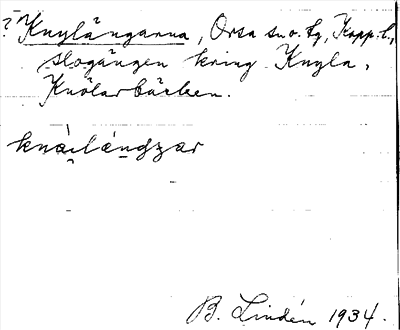 ? Knylängarna, Orsa sn o. tg, Kopp. l.,
slogängen kring Knyla,
Knölarbäcken.
knàiléndzar
B. Lindén 1934.